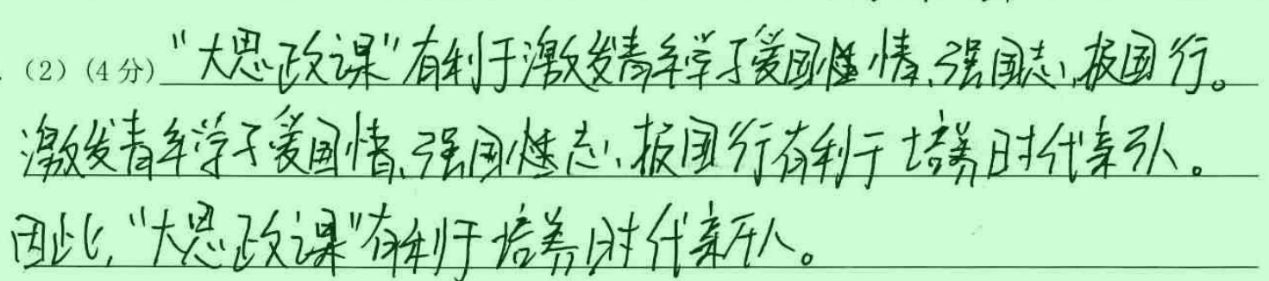 (2)(4分)"大思政课"有利于激发青年学子爱国情、强国志、报国行。
激发青年学子爱国情、强国志、报国行有利于培养时代新人。
因此,"大思政课"有利于培养时代新人。